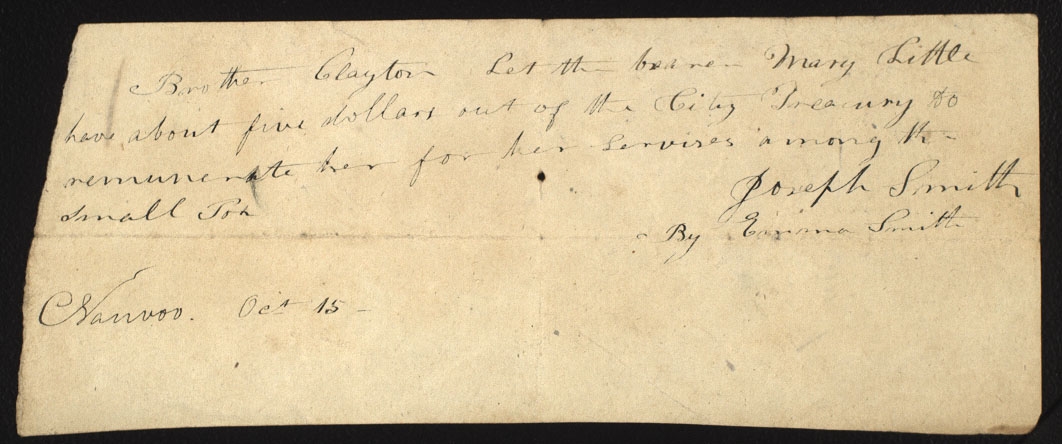 Brother Clayton Let the bearer Mary Little
have about five dollars out of the City Treasury to
remunerate her for her servises among the
small Pox
Joseph Smith
By Emma Smith
Nauvoo. Oct 15 -